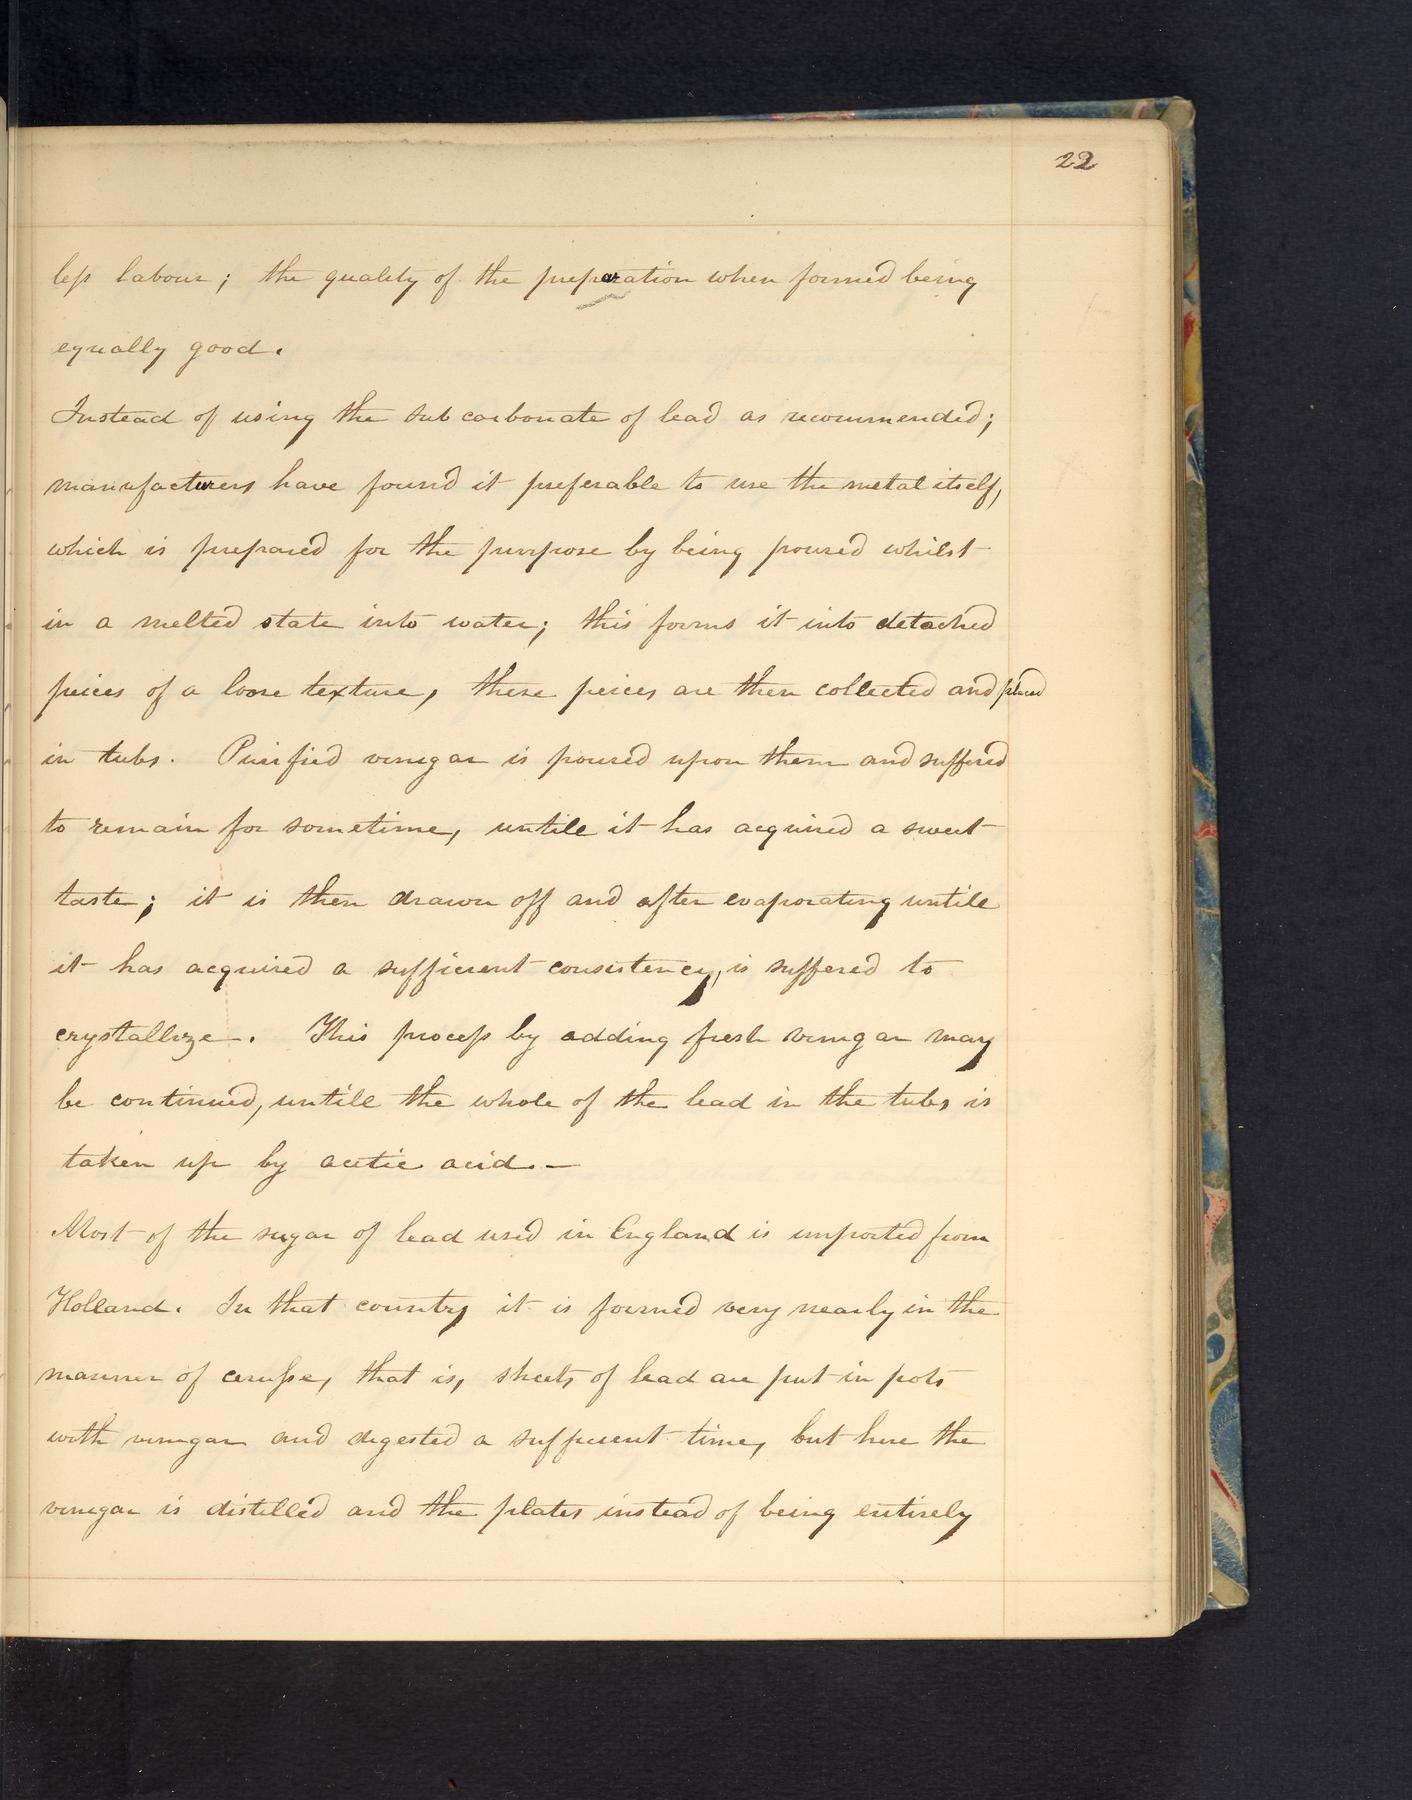 22
less labour; the quality of the preparation when formed being
equally good.
Instead of using the sub carbonate of lead as recommended;
manufacturers have found it preferable to use the metal itself,
which is prepared for the purpose by being poured whilst
in a melted state into water; this forms it into detached
peices of a loose texture, these peices are then collected and placed
in tubs. Purified vinegar is poured upon them and suffered
to remain for sometime, untile it has acquired a sweet
taste; it is then drawn off and after evaporating untile
it has acquired a sufficient consistency, is suffered to
crystallize. This process by adding fresh vinegar may
be continued, untile the whole of the lead in the tubs is
taken up by acetic acid. —
Most of the sugar of lead used in England is imported from
Holland. In that country it is formed very nearly in the
manner of ceruse, that is, sheets of lead are put in pots
with vinegar and digested a sufficient time, but here the
vinegar is distilled and the plates instead of being entirely